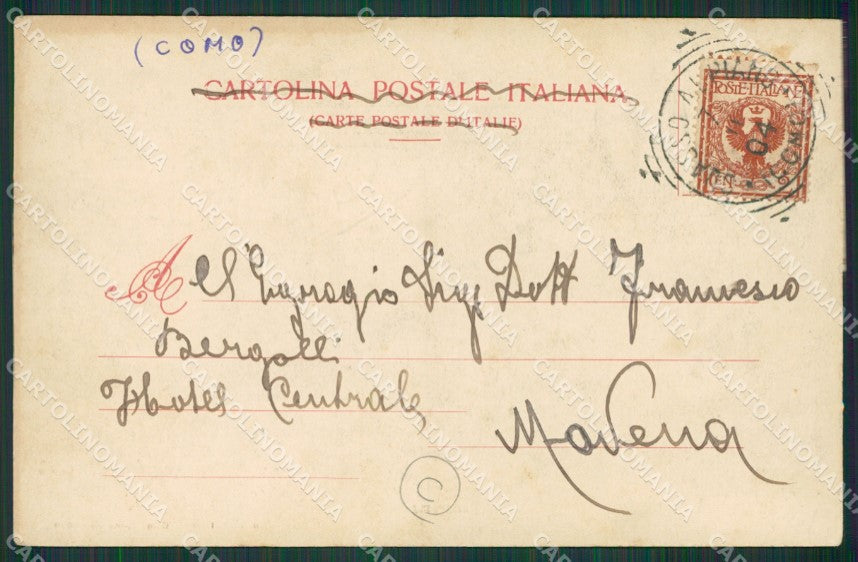 (COMO)
CARTOLINA POSTALE ITALIANA
(CARTE POSTALE D'ITALIE)
POSTE ITALIANE
04
A All'Egregio Sig Dott Francesco
Bergolli
Hotel Centrale
C
CARTOLINOMANIA